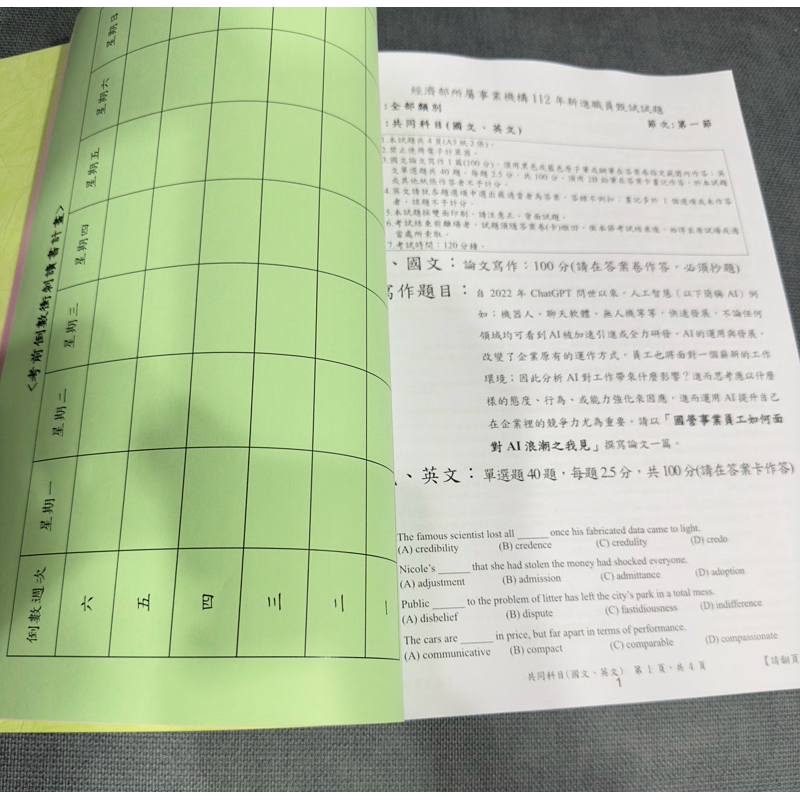 <考前倒數衝刺讀書計畫>
星期日
星期六
星期五
星期四
星期三
星期二
星期一
倒數週次
六
五
四
三
二
一
經濟部所屬事業機構 112 年新進職員甄試試題
:全部類別
:共同科目(國文、英文)
節次:第一節
1.本試題共 4 頁(A3 紙 2 張)。
2.禁止使用電子計算器。
3.國文論文寫作 1 篇(100 分),須用黑色或藍色原子筆或鋼筆在答案卷指定範圍內作答;英
文單選題共 40 題,每題 2.5 分,共 100 分,須用 2B 鉛筆在答案卡畫記作答,於本試題
或其他紙張作答者不予計分。
4.英文請就各題選項中選出最適當者為答案,答錯不倒扣;畫記多於 1 個選項或未作答
者,該題不予計分。
5.本試題採雙面印刷,請注意正、背面試題。
6.考試結束前離場者,試題須隨答案卷(卡)繳回,俟本節考試結束後,始得至原試場或適
當處所索取。
7.考試時間:120 分鐘。
、國文:論文寫作:100 分(請在答案卷作答,必須抄題)
寫作題目:自 2022 年 ChatGPT 問世以來,人工智慧(以下簡稱 AI)例
如:機器人、聊天軟體、無人機等等,快速發展,不論任何
領域均可看到 AI 被加速引進或全力研發。AI 的運用與發展,
改變了企業原有的運作方式,員工也將面對一個嶄新的工作
環境;因此分析 AI 對工作帶來什麼影響?進而思考應以什麼
樣的態度、行為、或能力強化來因應,進而運用 AI 提升自己
在企業裡的競爭力尤為重要。請以「國營事業員工如何面
對 AI 浪潮之我見」撰寫論文一篇。
、英文:單選題 40 題,每題 2.5 分,共 100 分(請在答案卡作答)
The famous scientist lost all ______ once his fabricated data came to light.
(A) credibility (B) credence (C) credulity (D) credo
Nicole's ______ that she had stolen the money had shocked everyone.
(A) adjustment (B) admission (C) admittance (D) adoption
Public ______ to the problem of litter has left the city's park in a total mess.
(A) disbelief (B) dispute (C) fastidiousness (D) indifference
The cars are ______ in price, but far apart in terms of performance.
(A) communicative (B) compact (C) comparable (D) compassionate
共同科目(國文、英文) 第 1 頁,共 4 頁
【請翻頁
1